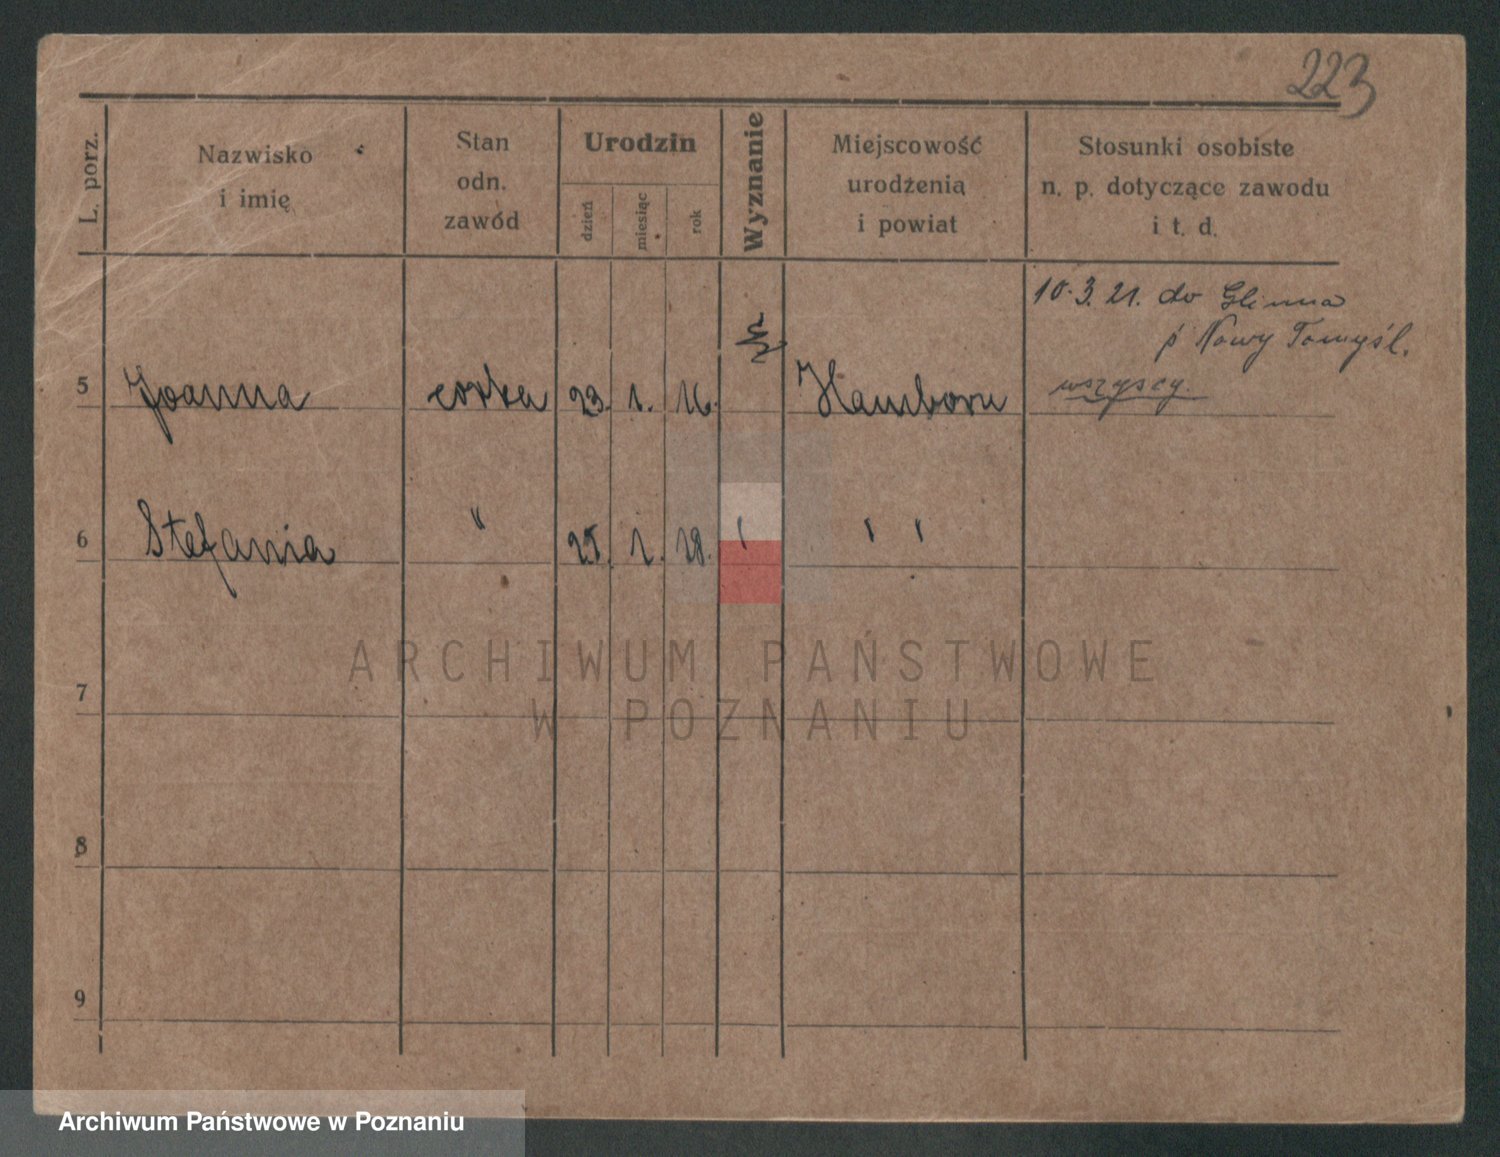 223
L. porz.
Nazwisko
i imię
Stan
odn.
zawód
Urodzin
dzień
miesiąc
rok
Wyznanie
Miejscowość
urodzenia
i powiat
Stosunki osobiste
n. p. dotyczące zawodu
i t. d.
10.3.21. do Glinna
p Nowy Tomyśl.
wszyscy.
5 Joanna córka 23. 1. 16. Hamborn
6 Stefania " 25. 1. 18. " " "
7
8
9
ARCHIWUM PAŃSTWOWE
W POZNANIU
Archiwum Państwowe w Poznaniu